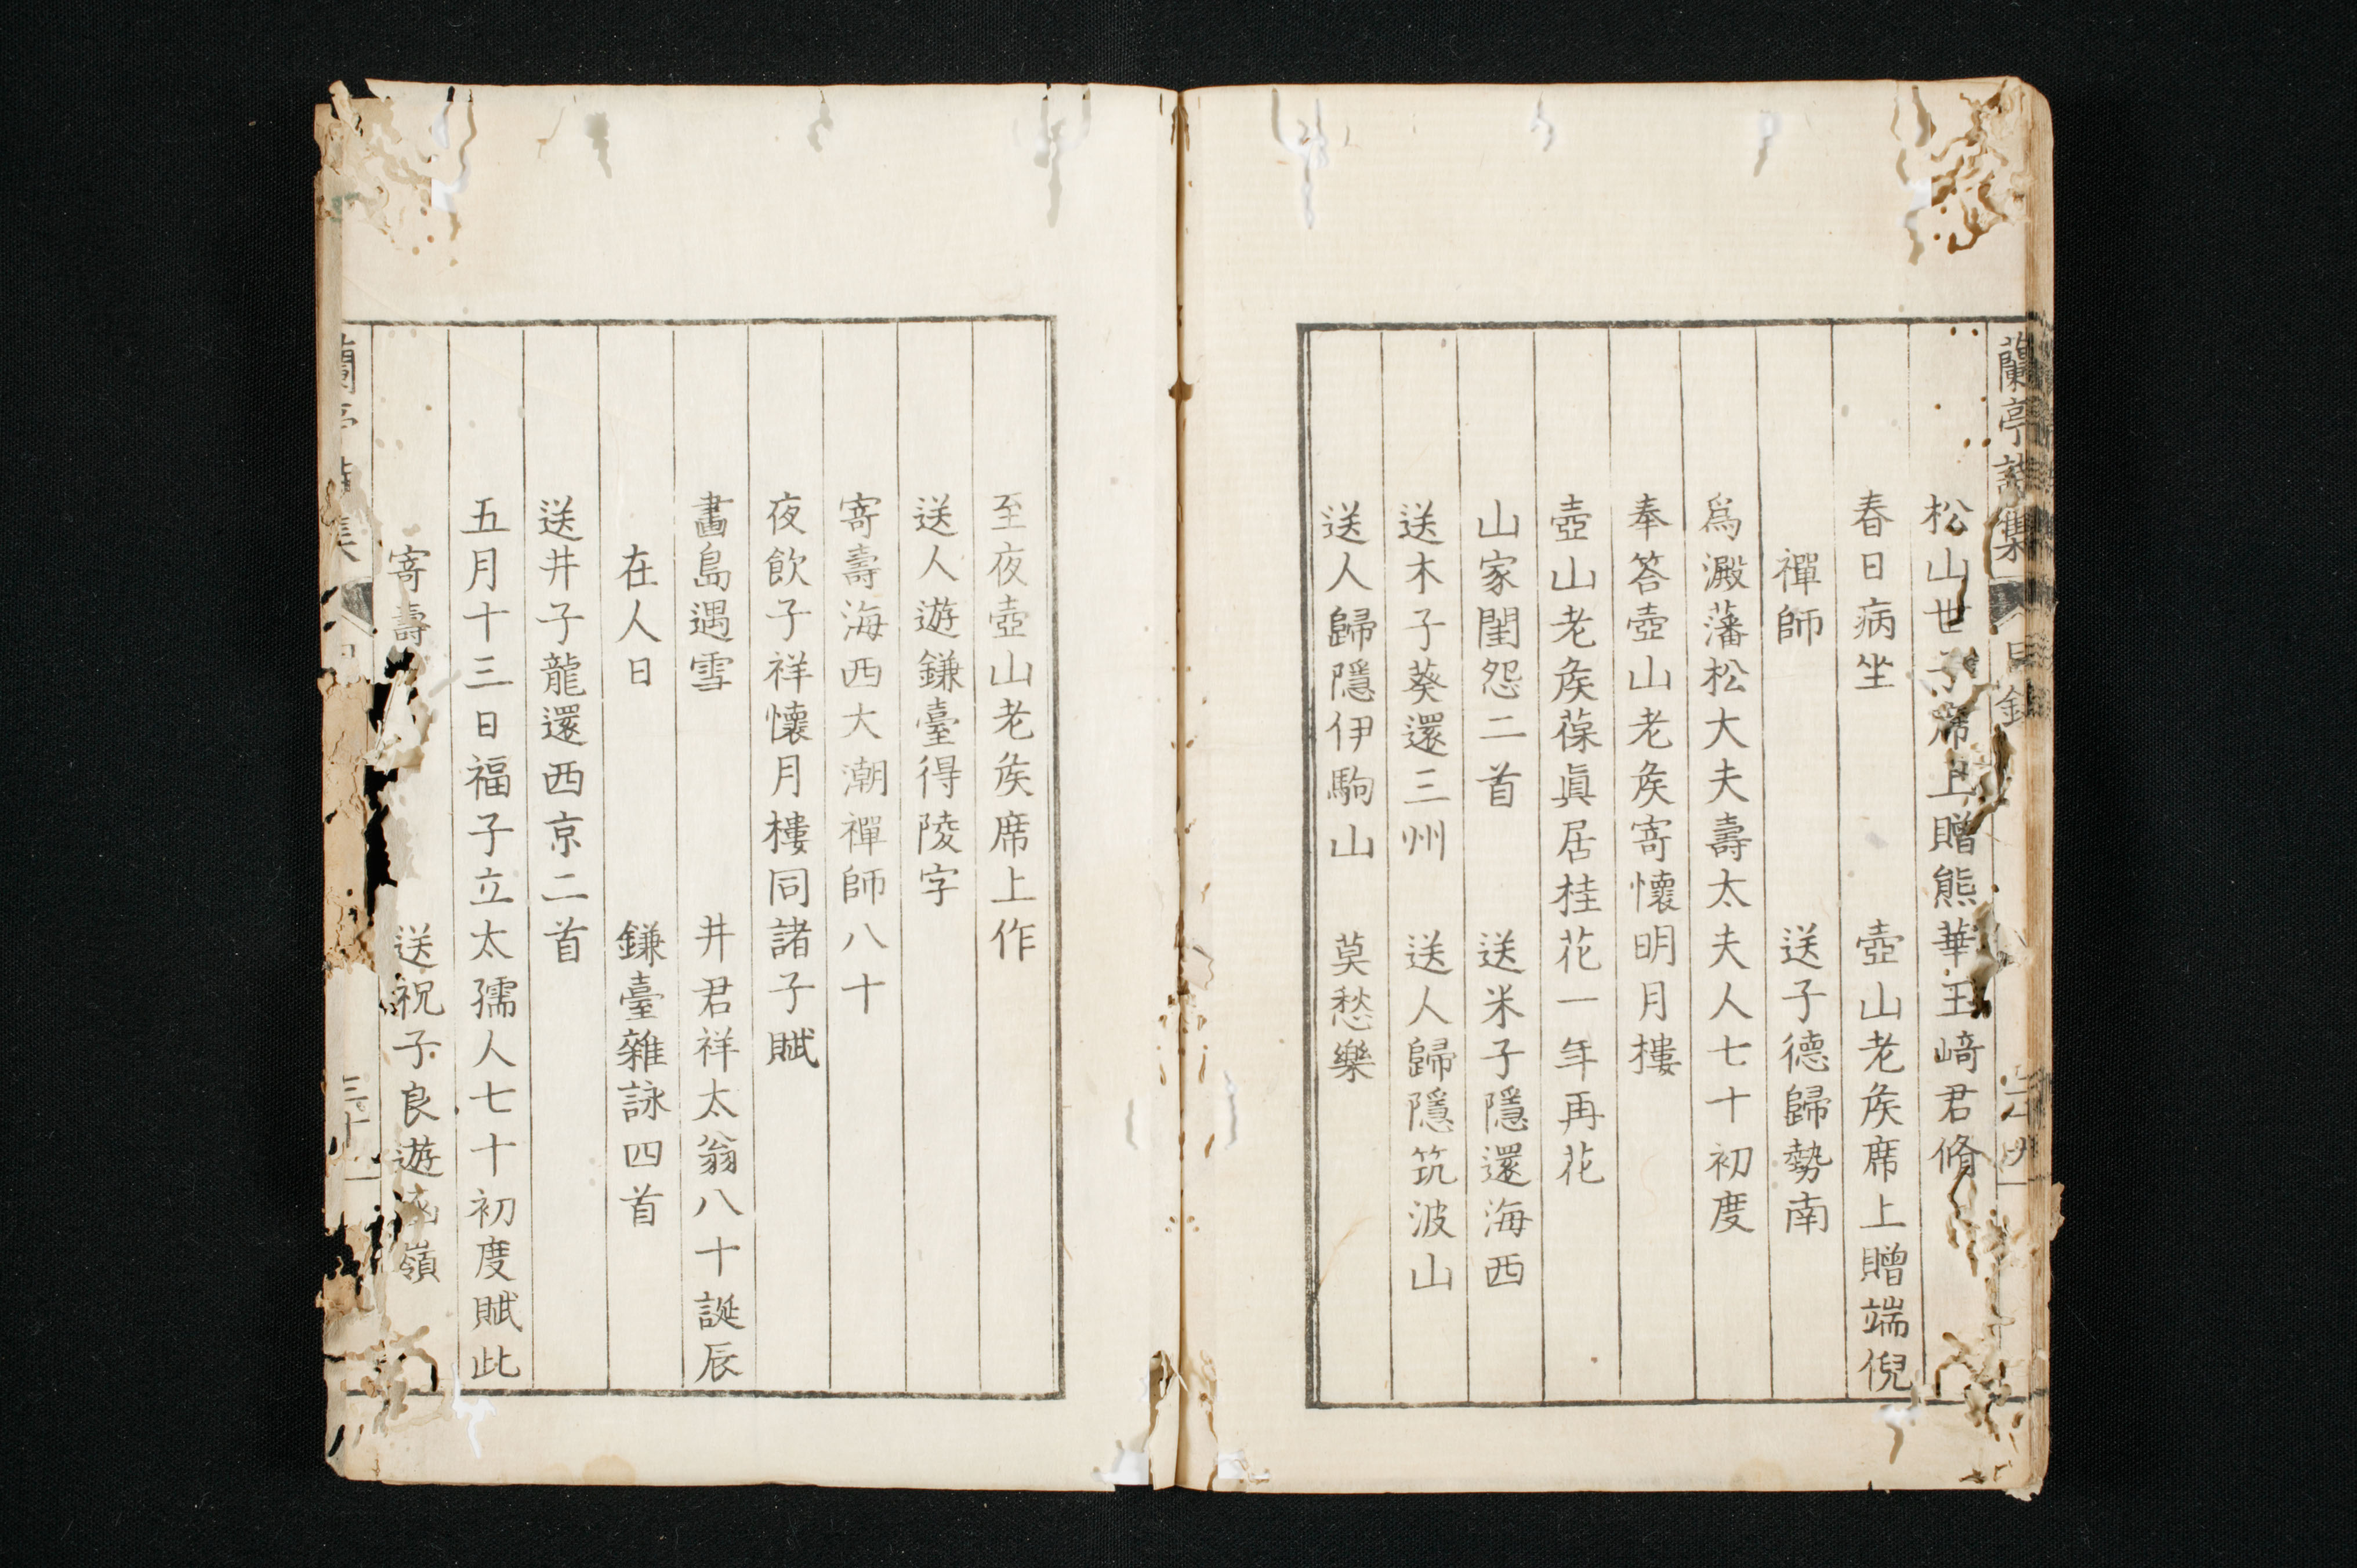 蘭亭詩集 目録
松山世子席上贈熊華玉﨑君脩
春日病坐 壺山老矦席上贈端倪
禪師 送子德歸勢南
爲澱藩松大夫壽太夫人七十初度
奉答壺山老矦寄懷明月樓
壺山老矦葆眞居桂花一年再花
山家閨怨二首 送米子隱還海西
送木子葵還三州 送人歸隱筑波山
送人歸隱伊駒山 莫愁樂
至夜壺山老矦席上作
送人遊鎌臺得陵字
寄壽海西大潮禪師八十
夜飲子祥懷月樓同諸子賦
畵島遇雪 井君祥太翁八十誕辰
在人日 鎌臺雜詠四首
送井子龍還西京二首
五月十三日福子立太孺人七十初度賦此
寄壽 送祝子良遊函嶺
三十一